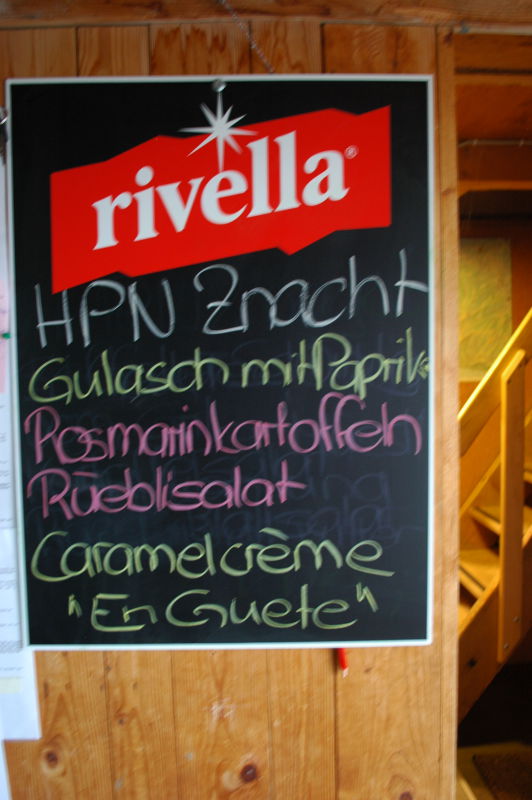 rivella®
HPN Znacht
Gulasch mit Paprika
Rosmarinkartoffeln
Rüeblisalat
Caramelcrème
"En Guete"